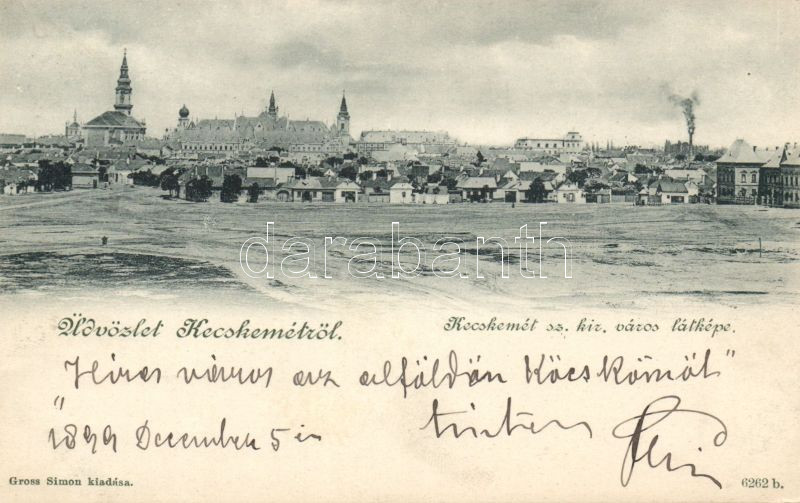 darabanth
Üdvözlet Kecskemétről.
Kecskemét sz. kir. város látképe.
„Hires város az alföldön Köcskömét"
1899 December 5 én
Gross Simon kiadása.
6262 b.